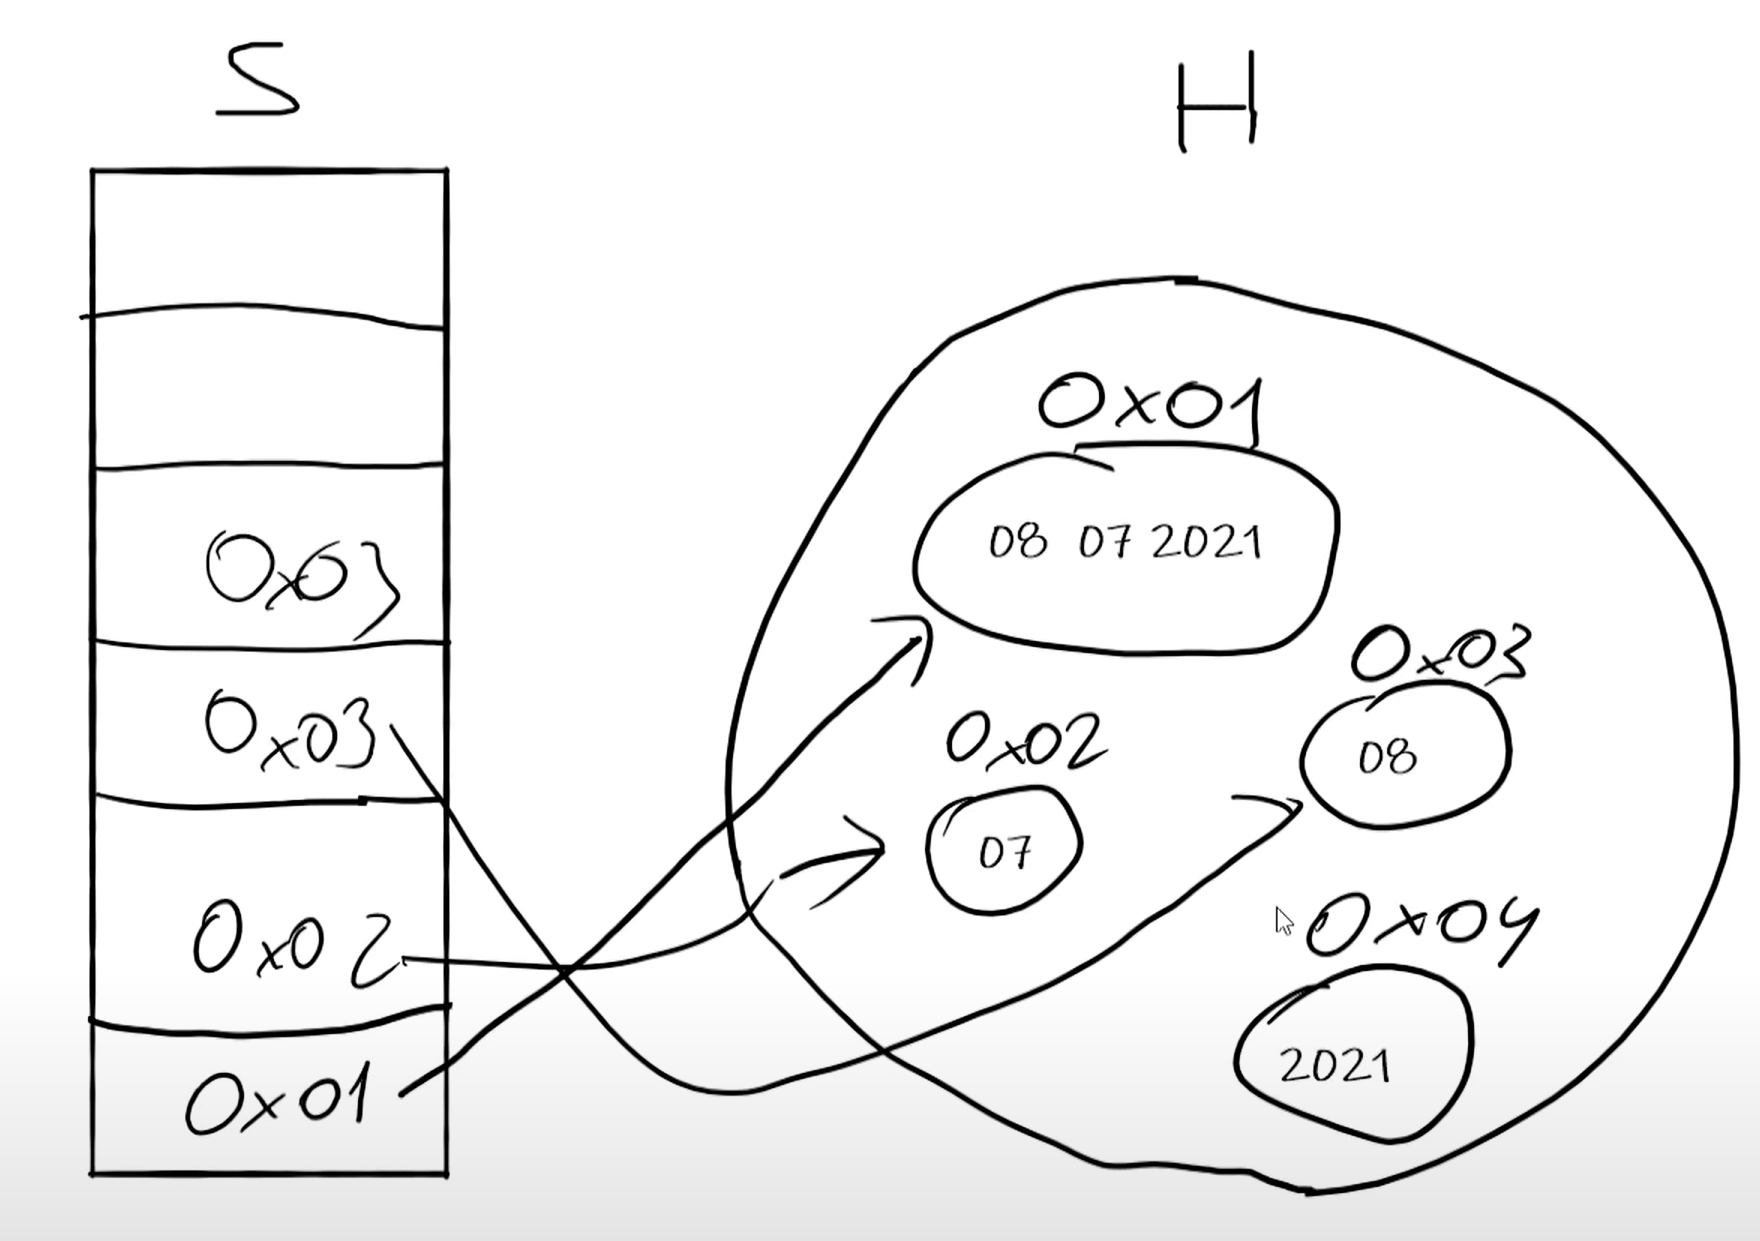 S
H
0x03
0x03
0x02
0x01
0x01
08 07 2021
0x02
07
0x03
08
0x04
2021